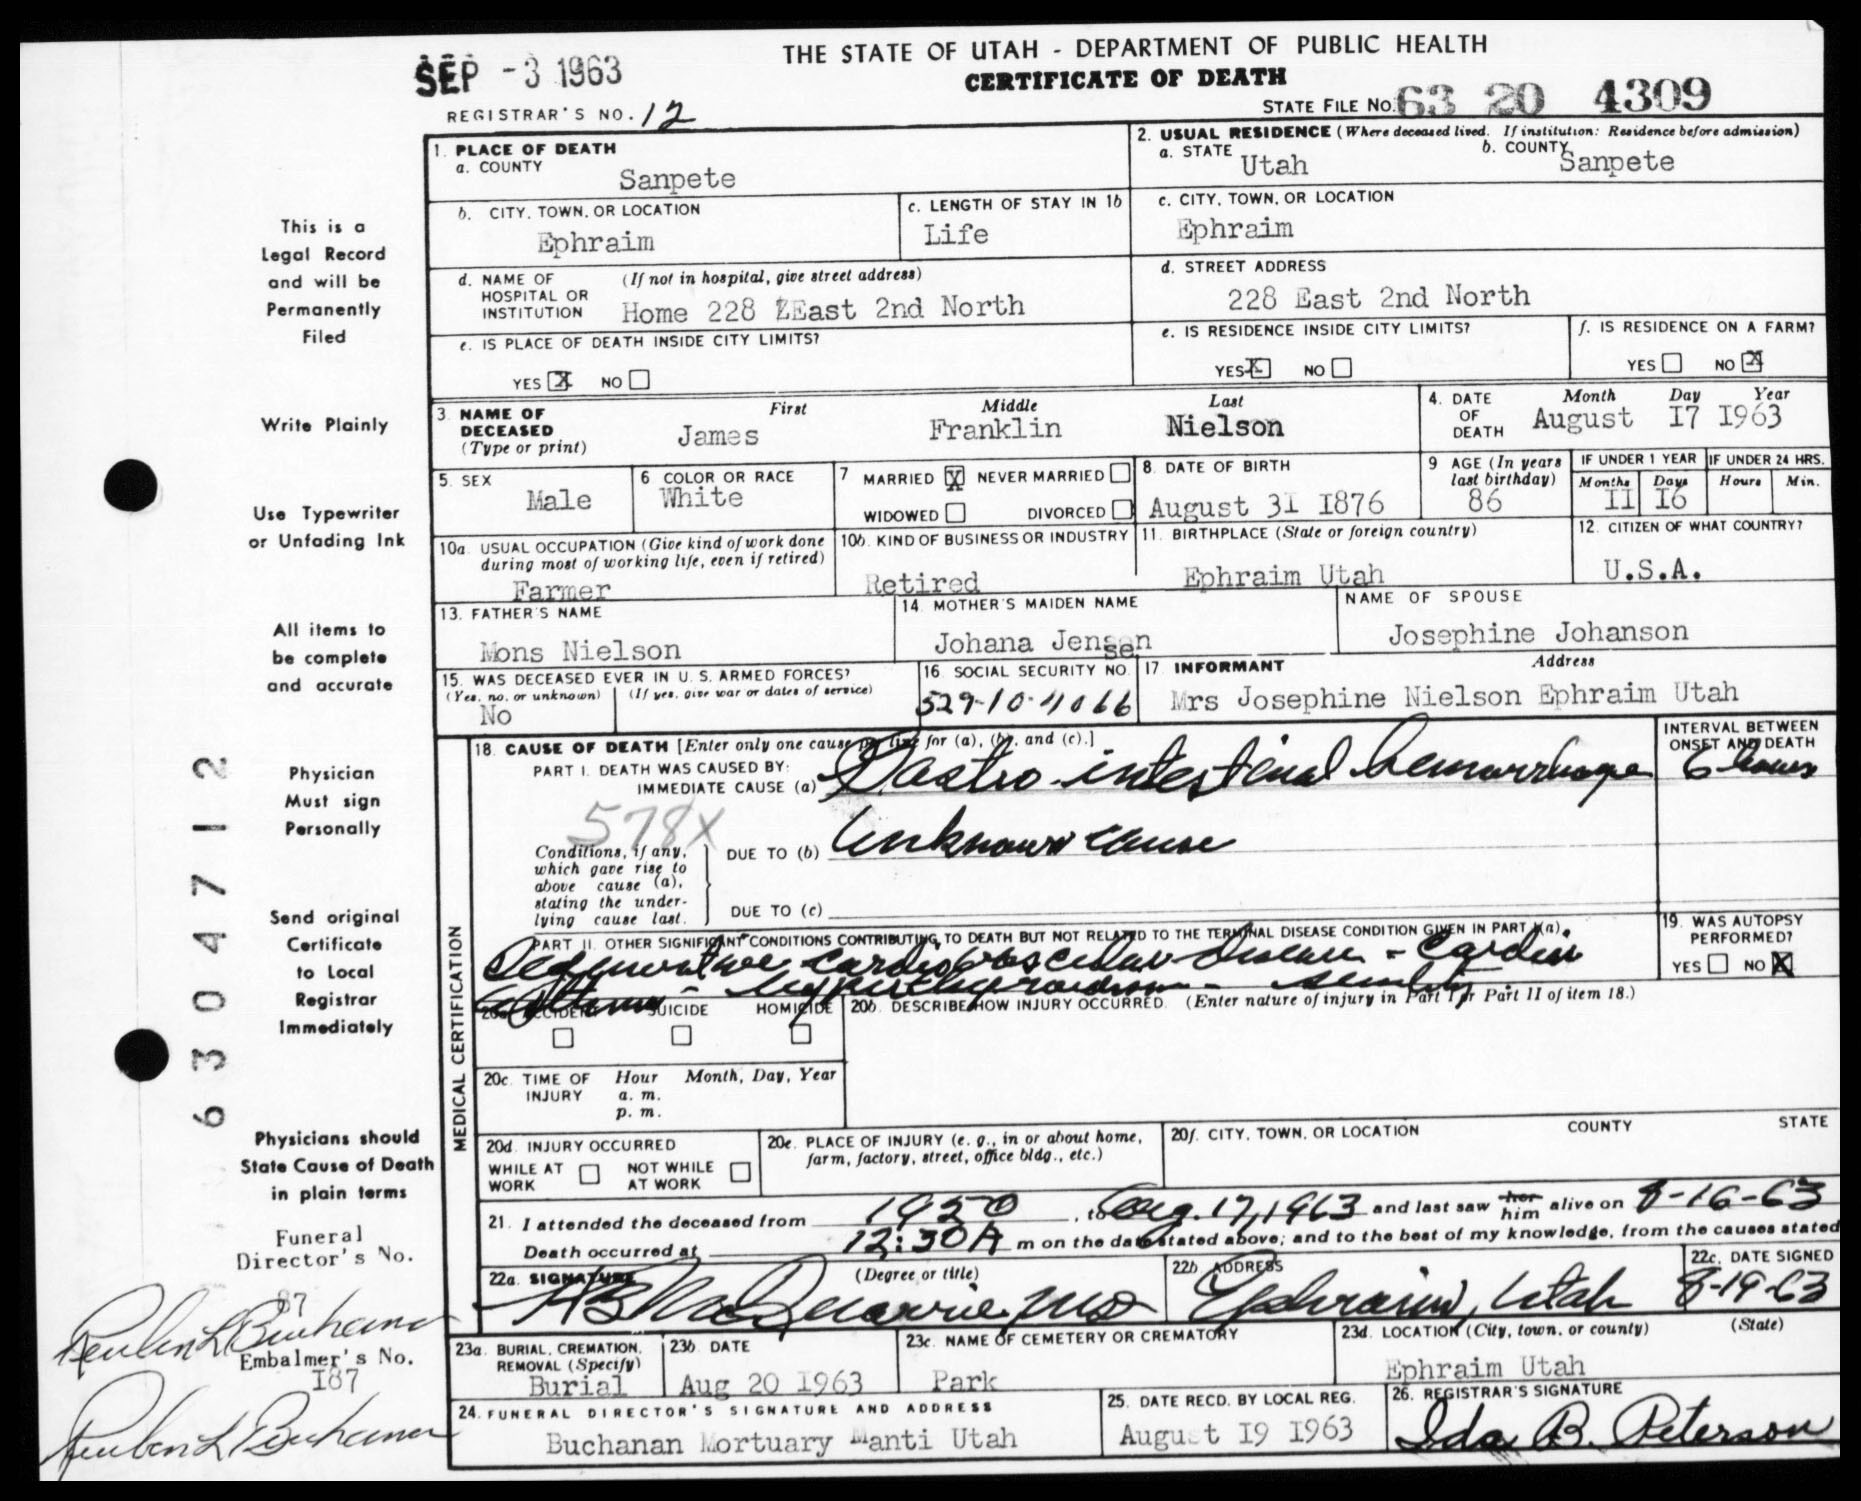 THE STATE OF UTAH - DEPARTMENT OF PUBLIC HEALTH
SEP -3 1963
CERTIFICATE OF DEATH
REGISTRAR'S NO. 12
STATE FILE NO. 63 20 4309
1. PLACE OF DEATH
a. COUNTY
Sanpete
2. USUAL RESIDENCE (Where deceased lived. If institution: Residence before admission)
a. STATE Utah b. COUNTY Sanpete
b. CITY, TOWN, OR LOCATION
Ephraim
c. LENGTH OF STAY IN 1b
Life
c. CITY, TOWN, OR LOCATION
Ephraim
d. NAME OF HOSPITAL OR INSTITUTION (If not in hospital, give street address)
Home 228 East 2nd North
d. STREET ADDRESS
228 East 2nd North
e. IS PLACE OF DEATH INSIDE CITY LIMITS?
YES X NO
e. IS RESIDENCE INSIDE CITY LIMITS?
YES X NO
f. IS RESIDENCE ON A FARM?
YES NO X
3. NAME OF DECEASED (Type or print)
First Middle Last
James Franklin Nielson
4. DATE OF DEATH
Month Day Year
August I7 I963
5. SEX
Male
6 COLOR OR RACE
White
7 MARRIED X NEVER MARRIED
WIDOWED DIVORCED
8. DATE OF BIRTH
August 3I I876
9 AGE (In years last birthday)
86
IF UNDER 1 YEAR
Months Days
II I6
IF UNDER 24 HRS.
Hours Min.
10a. USUAL OCCUPATION (Give kind of work done during most of working life, even if retired)
Farmer
10b. KIND OF BUSINESS OR INDUSTRY
Retired
11. BIRTHPLACE (State or foreign country)
Ephraim Utah
12. CITIZEN OF WHAT COUNTRY?
U.S.A.
13. FATHER'S NAME
Mons Nielson
14. MOTHER'S MAIDEN NAME
Johana Jensen
NAME OF SPOUSE
Josephine Johanson
15. WAS DECEASED EVER IN U.S. ARMED FORCES?
(Yes, no, or unknown) (If yes, give war or dates of service)
No
16. SOCIAL SECURITY NO.
529-10-4066
17. INFORMANT Address
Mrs Josephine Nielson Ephraim Utah
MEDICAL CERTIFICATION
18. CAUSE OF DEATH [Enter only one cause per line for (a), (b), and (c).]
PART I. DEATH WAS CAUSED BY:
IMMEDIATE CAUSE (a) Gastro-intestinal hemorrhage
INTERVAL BETWEEN ONSET AND DEATH
6 hours
578X
Conditions, if any, which gave rise to above cause (a), stating the underlying cause last.
DUE TO (b) Unknown cause
DUE TO (c)
PART II. OTHER SIGNIFICANT CONDITIONS CONTRIBUTING TO DEATH BUT NOT RELATED TO THE TERMINAL DISEASE CONDITION GIVEN IN PART I(a).
Degenerative cardiovascular disease - Cardiac
Asthma - hyperthyroidism - senility
19. WAS AUTOPSY PERFORMED?
YES NO X
20a. ACCIDENT SUICIDE HOMICIDE
20b. DESCRIBE HOW INJURY OCCURRED. (Enter nature of injury in Part I or Part II of item 18.)
20c. TIME OF INJURY Hour Month, Day, Year
a. m.
p. m.
20d. INJURY OCCURRED
WHILE AT WORK NOT WHILE AT WORK
20e. PLACE OF INJURY (e. g., in or about home, farm, factory, street, office bldg., etc.)
20f. CITY, TOWN, OR LOCATION COUNTY STATE
21. I attended the deceased from 1950, to Aug. 17, 1963 and last saw her him alive on 8-16-63
Death occurred at 12:30 A m on the date stated above; and to the best of my knowledge, from the causes stated
22a. SIGNATURE (Degree or title)
MD
22b. ADDRESS
Ephraim, Utah
22c. DATE SIGNED
8-19-63
23a. BURIAL, CREMATION, REMOVAL (Specify)
Burial
23b. DATE
Aug 20 I963
23c. NAME OF CEMETERY OR CREMATORY
Park
23d. LOCATION (City, town, or county) (State)
Ephraim Utah
24. FUNERAL DIRECTOR'S SIGNATURE AND ADDRESS
Buchanan Mortuary Manti Utah
25. DATE RECD. BY LOCAL REG.
August I9 I963
26. REGISTRAR'S SIGNATURE
Ida B. Peterson
This is a
Legal Record
and will be
Permanently
Filed
Write Plainly
Use Typewriter
or Unfading Ink
All items to
be complete
and accurate
Physician
Must sign
Personally
Send original
Certificate
to Local
Registrar
Immediately
Physicians should
State Cause of Death
in plain terms
Funeral
Director's No.
87
Reuben L Buchanan
Embalmer's No.
I87
Reuben L Buchanan
6304712